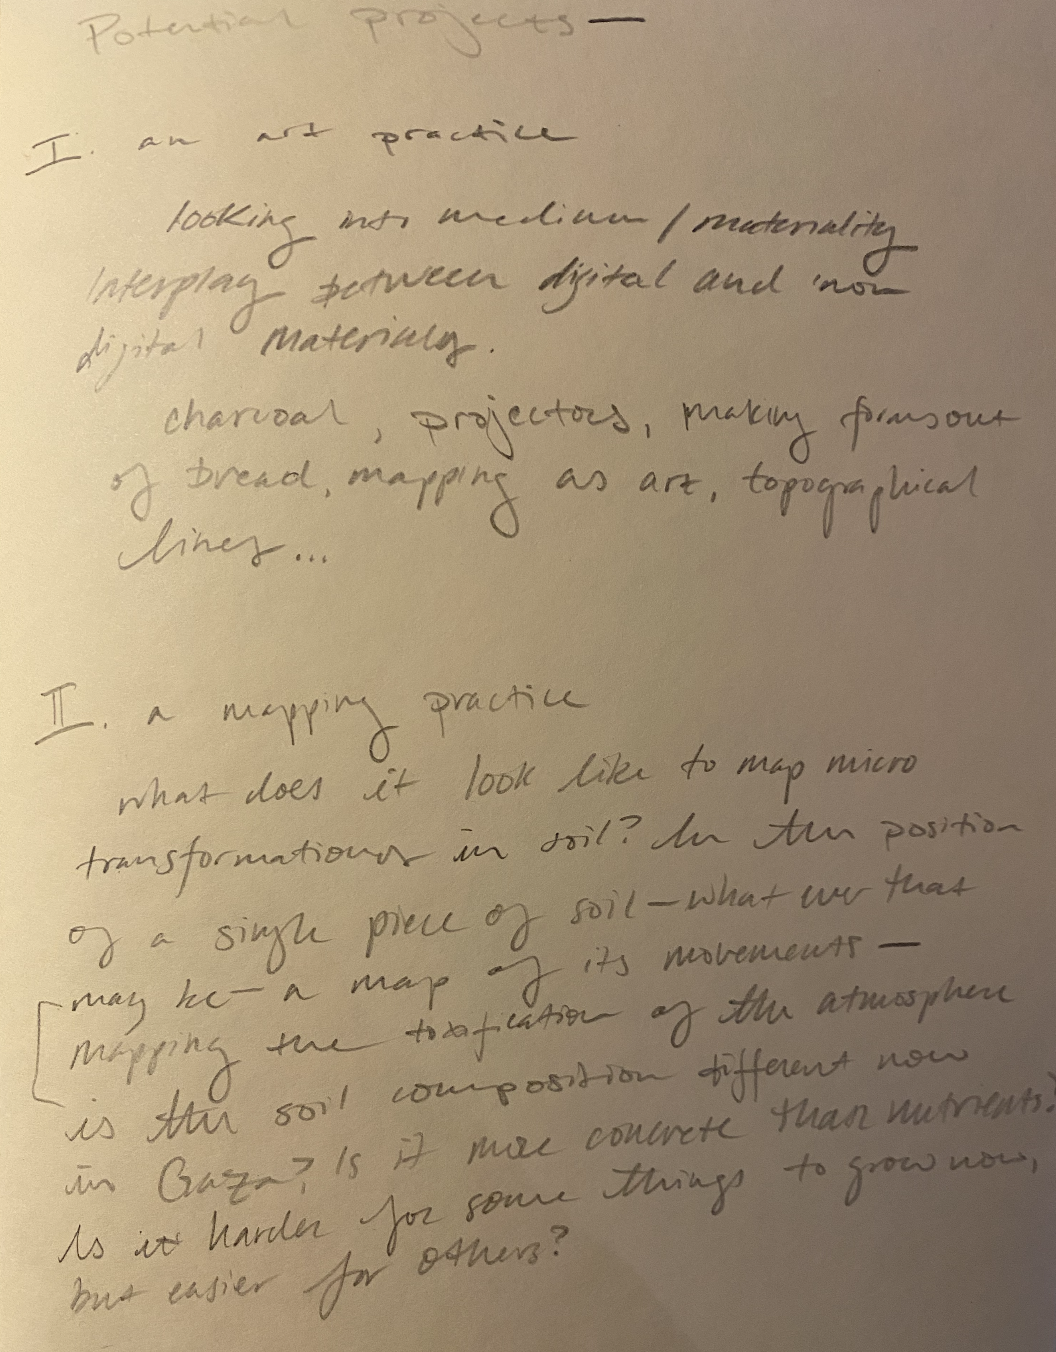 Potential projects —
I. an art practice
looking into medium / materiality
Interplay between digital and non
digital materials.
charcoal, projectors, making forms out
of bread, mapping as art, topographical
lines...
II. a mapping practice
what does it look like to map micro
transformations in soil? In the position
of a single piece of soil — what ever that
may be — a map of its movements —
mapping the toxification of the atmosphere
is the soil composition different now
in Gaza? Is it more concrete than nutrients?
Is it harder for some things to grow now,
but easier for others?